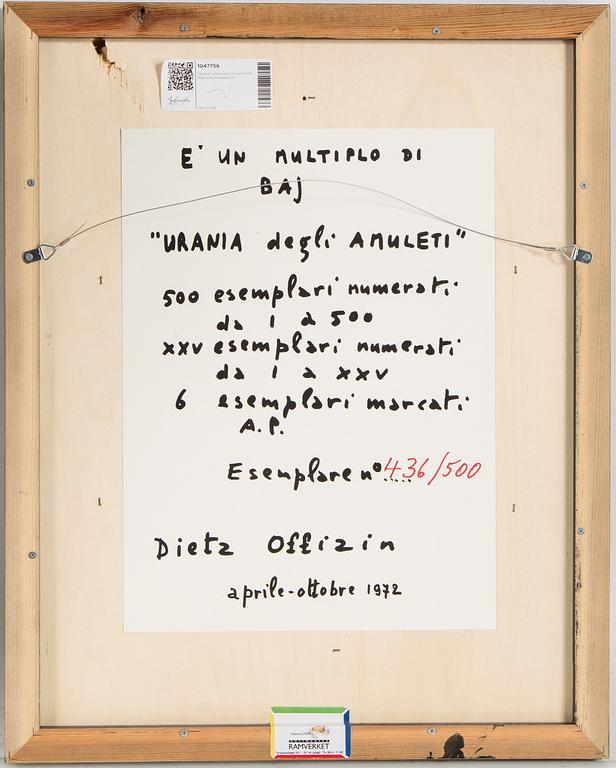 1047756
E' UN MULTIPLO DI
BAJ
"URANIA degli AMULETI"
500 esemplari numerati
da 1 a 500
XXV esemplari numerati
da 1 a XXV
6 esemplari marcati
A.P.
Esemplare n° 436/500
Dietz Offizin
aprile-ottobre 1972
RAMVERKET